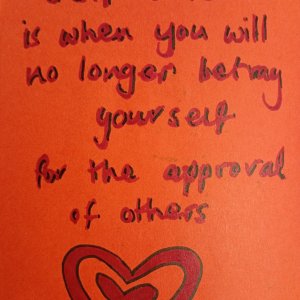 is when you will
no longer betray
yourself
for the approval
of others